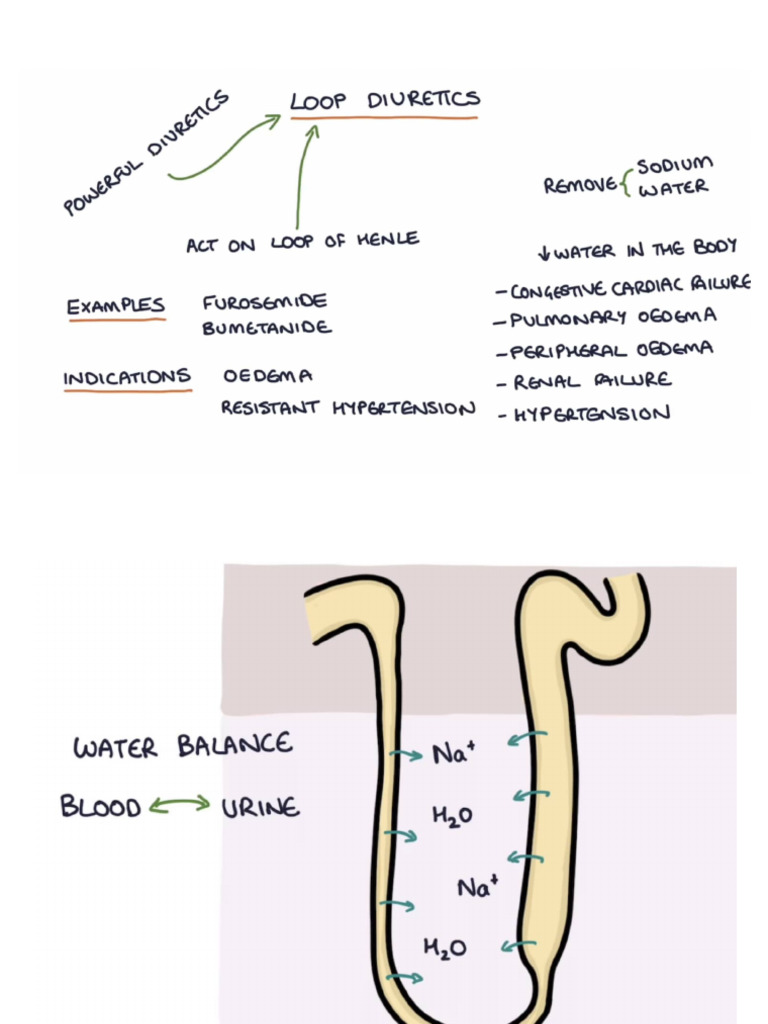 LOOP DIURETICS
POWERFUL DIURETICS
ACT ON LOOP OF HENLE
REMOVE { SODIUM
WATER
↓ WATER IN THE BODY
- CONGESTIVE CARDIAC FAILURE
- PULMONARY OEDEMA
- PERIPHERAL OEDEMA
- RENAL FAILURE
- HYPERTENSION
EXAMPLES FUROSEMIDE
BUMETANIDE
INDICATIONS OEDEMA
RESISTANT HYPERTENSION
WATER BALANCE
BLOOD ↔ URINE
Na⁺
H₂O
Na⁺
H₂O